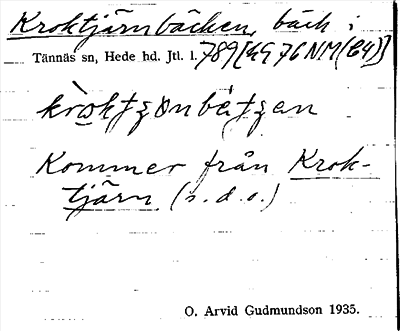 Kroktjärnbäcken, bäck i
Tännäs sn, Hede hd. Jtl. l. 789 [4G 76 NM (C4)]
Kommer från Krok-
tjärn (s.d.o.)
O. Arvid Gudmundson 1935.